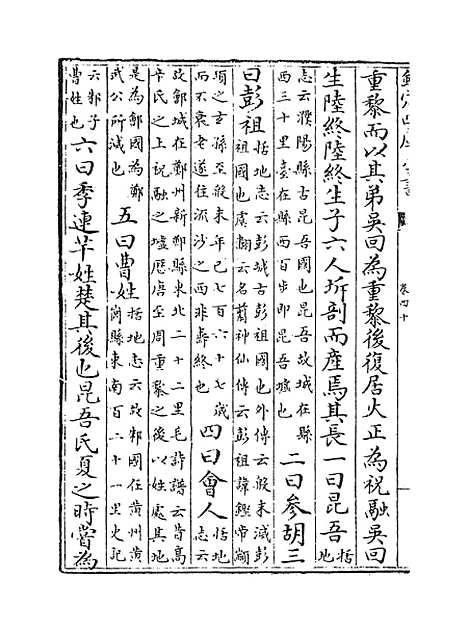 欽定四庫全書
卷四十
重黎而以其弟吳回為重黎後復居火正為祝融吳回
生陸終陸終生子六人坼剖而產焉其長一曰昆吾括地
志云濮陽縣古昆吾國也昆吾故城在縣
西三十里臺在縣西百步即昆吾墟也
二曰參胡三
曰彭祖
括地志云彭城古彭祖國也外傳云殷末滅彭
祖國也虞翻云名翦神仙傳云彭祖諱鏗帝顓
頊之玄孫至殷末年已七百六十七歲
而不衰老遂往流沙之西非壽終也
四曰會人
括地
志云
故鄶城在鄭州新鄭縣東北二十二里毛詩譜云昔高
辛氏之土祝融之墟歷唐至周重黎之後妘姓處其地
是為鄶國為鄭
武公所滅也
五曰曹姓
括地志云故邾國在黃州黃
岡縣東南百二十一里史記
云邾子
曹姓也
六曰季連羋姓楚其後也昆吾氏夏之時嘗為